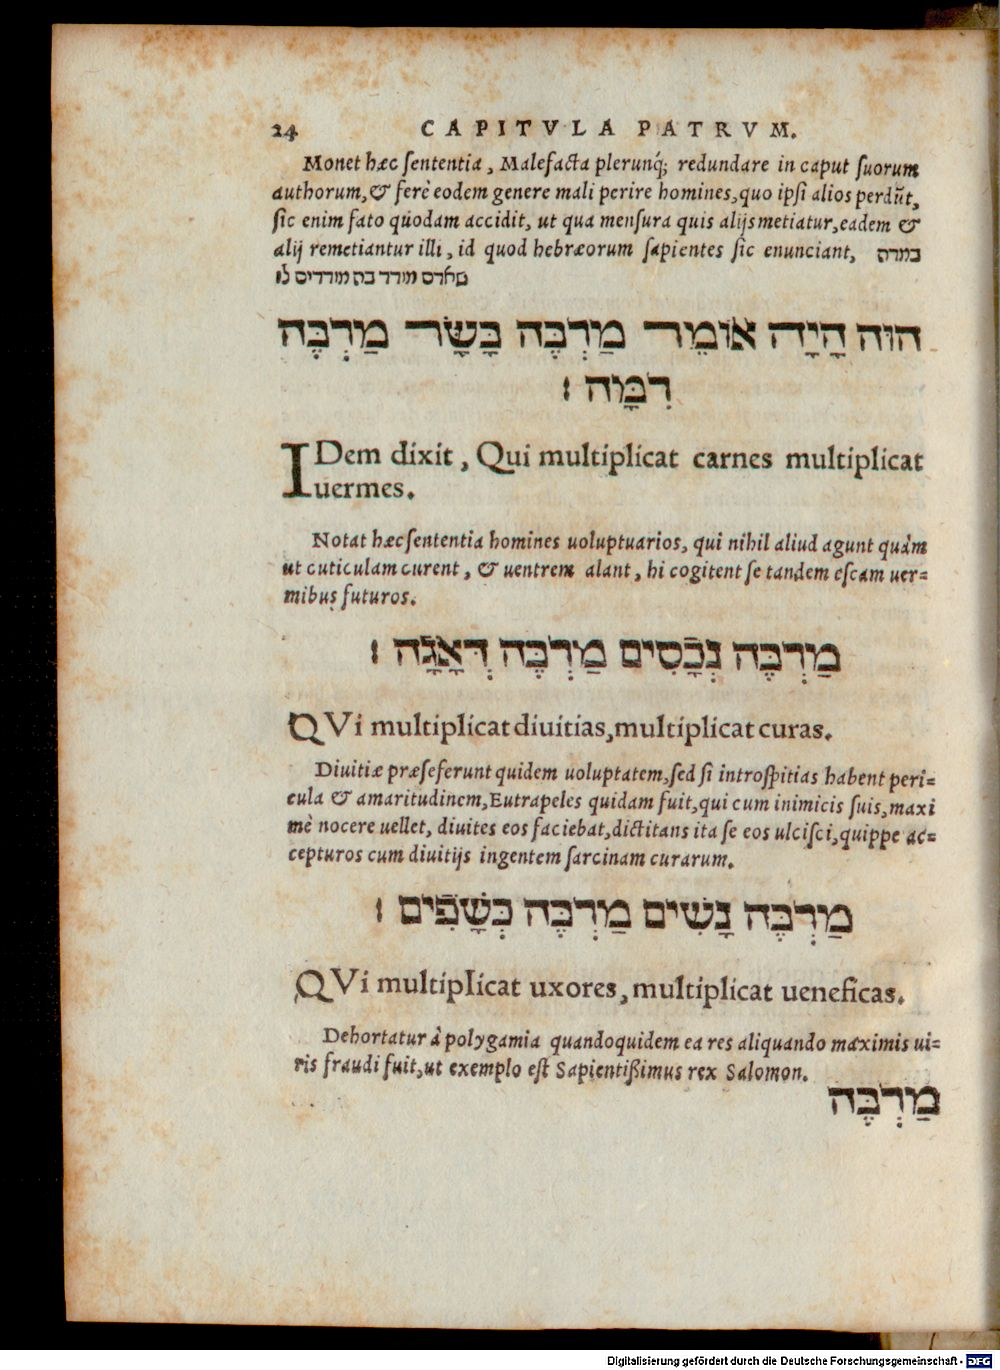 24 CAPITVLA PATRVM.
Monet hæc ſententia, Malefacta plerunq́; redundare in caput ſuorum
authorum, & ferè eodem genere mali perire homines, quo ipſi alios perdūt,
ſic enim fato quodam accidit, ut qua menſura quis alijs metiatur, eadem &
alij remetiantur illi, id quod hebræorum ſapientes ſic enunciant, במדה
שאדם מודד בה מודדים לו
הוּה הָיָה אוֹמֵר מַרְבֶּה בָּשָׂר מַרְבֶּה
רִמָּה ׃
IDem dixit, Qui multiplicat carnes multiplicat
uermes.
Notat hæc ſententia homines uoluptuarios, qui nihil aliud agunt quàm
ut cuticulam curent, & uentrem alant, hi cogitent ſe tandem eſcam uer=
mibus futuros.
מַרְבֶּה נְכָסִים מַרְבֶּה דְּאָגָה ׃
QVi multiplicat diuitias, multiplicat curas.
Diuitiæ præſeferunt quidem uoluptatem, ſed ſi introſpitias habent peri=
cula & amaritudinem, Eutrapeles quidam fuit, qui cum inimicis ſuis, maxi
mè nocere uellet, diuites eos faciebat, dictitans ita ſe eos ulciſci, quippe ac=
cepturos cum diuitijs ingentem ſarcinam curarum.
מַרְבֶּה נָשִׁים מַרְבֶּה כְּשָׁפִים ׃
QVi multiplicat uxores, multiplicat ueneficas.
Dehortatur à polygamia quandoquidem ea res aliquando maximis ui=
ris fraudi fuit, ut exemplo eſt Sapientißimus rex Salomon.
מַרְבֶּה
Digitalisierung gefördert durch die Deutsche Forschungsgemeinschaft - DFG